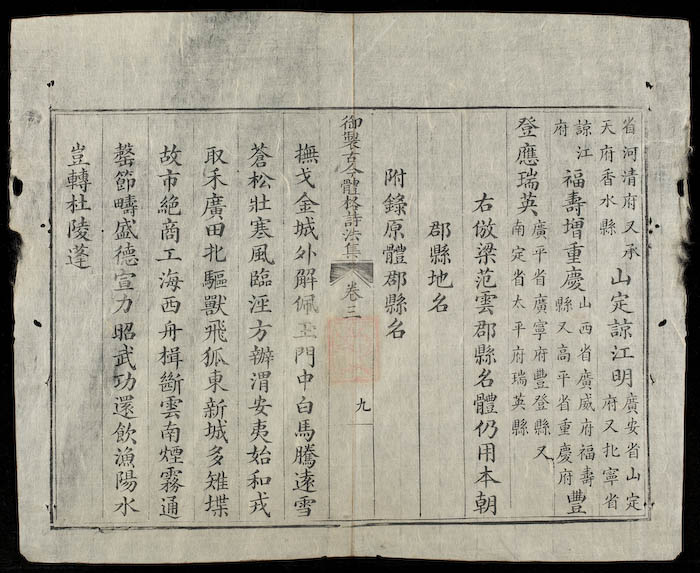 省河清府又承天府香水縣山定諒江明廣安省山定府又北寧省
諒江府福壽增重慶山西省廣威府福壽縣又高平省重慶府豐
登應瑞英廣平省廣寧府豐登縣又南定省太平府瑞英縣
右倣梁范雲郡縣名體仍用本朝
郡縣地名
附錄原體郡縣名
御製古今體格詩法集 卷三 九
撫戈金城外解佩玉門中白馬騰遠雪
蒼松壯塞風臨涇方辦渭安夷始和戎
取禾廣田北驅獸飛狐東新城多雉堞
故市絕商工海西舟楫斷雲南煙霧通
罄節疇盛德宣力昭武功還飲漁陽水
豈轉杜陵蓬